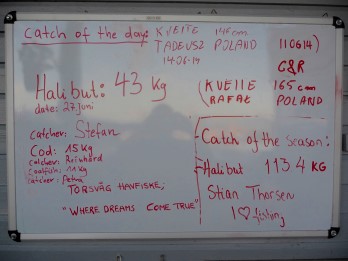 Catch of the day: KVEITE 145 cm
TADEUSZ POLAND
14.06.14
110614)
C&R
Halibut: 43 kg
date: 27. juni
(KVEITE 165 cm
RAFAŁ POLAND
catcher: Stefan
Cod: 15 kg
catcher: Reinhard
Coalfish: 11 kg
catcher: Petra
TORSVÅG HAVFISKE;
"WHERE DREAMS COME TRUE"
Catch of the season:
Halibut 113.4 KG
Stian Thorsen
I ♡ fishing